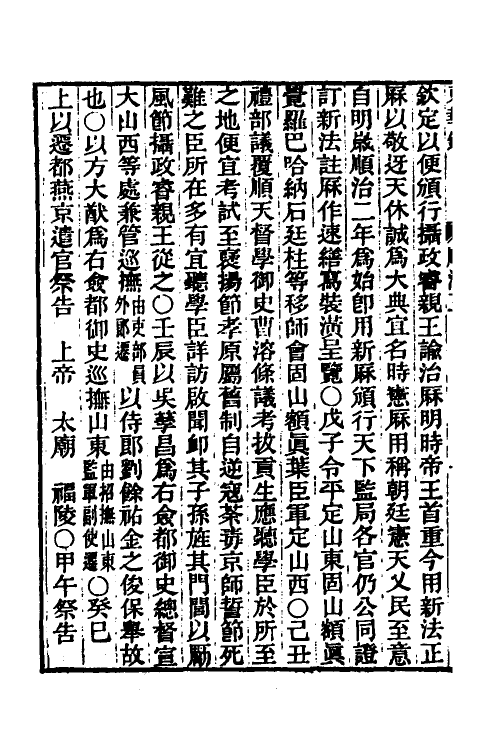 欽定以便頒行攝政睿親王諭治厤明時帝王首重今用新法正
厤以敬迓天休誠為大典宜名時憲厤用稱朝廷憲天乂民至意
自明歲順治二年為始卽用新厤頒行天下監局各官仍公同證
訂新法註厤作速繕寫裝潢呈覽○戊子令平定山東固山額眞
覺羅巴哈納石廷柱等移師會固山額眞葉臣軍定山西○己丑
禮部議覆順天督學御史曹溶條議考拔貢生應聽學臣於所至
之地便宜考試至襃揚節孝原屬舊制自逆寇荼毒京師誓節死
難之臣所在多有宜聽學臣詳訪啟聞卹其子孫旌其門閭以勵
風節攝政睿親王從之○壬辰以吳孳昌為右僉都御史總督宣
大山西等處兼管巡撫由吏部員外郎遷以侍郎劉餘祐金之俊保舉故
也○以方大猷為右僉都御史巡撫山東由招撫山東監軍副使遷○癸巳
上以遷都燕京遣官祭告　上帝　太廟　福陵○甲午祭告